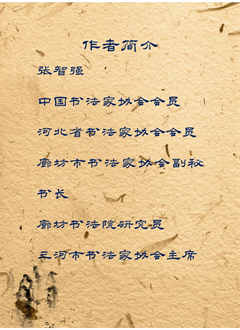 作者简介
张智强
中国书法家协会会员
河北省书法家协会会员
廊坊市书法家协会副秘
书长
廊坊书法院研究员
三河市书法家协会主席